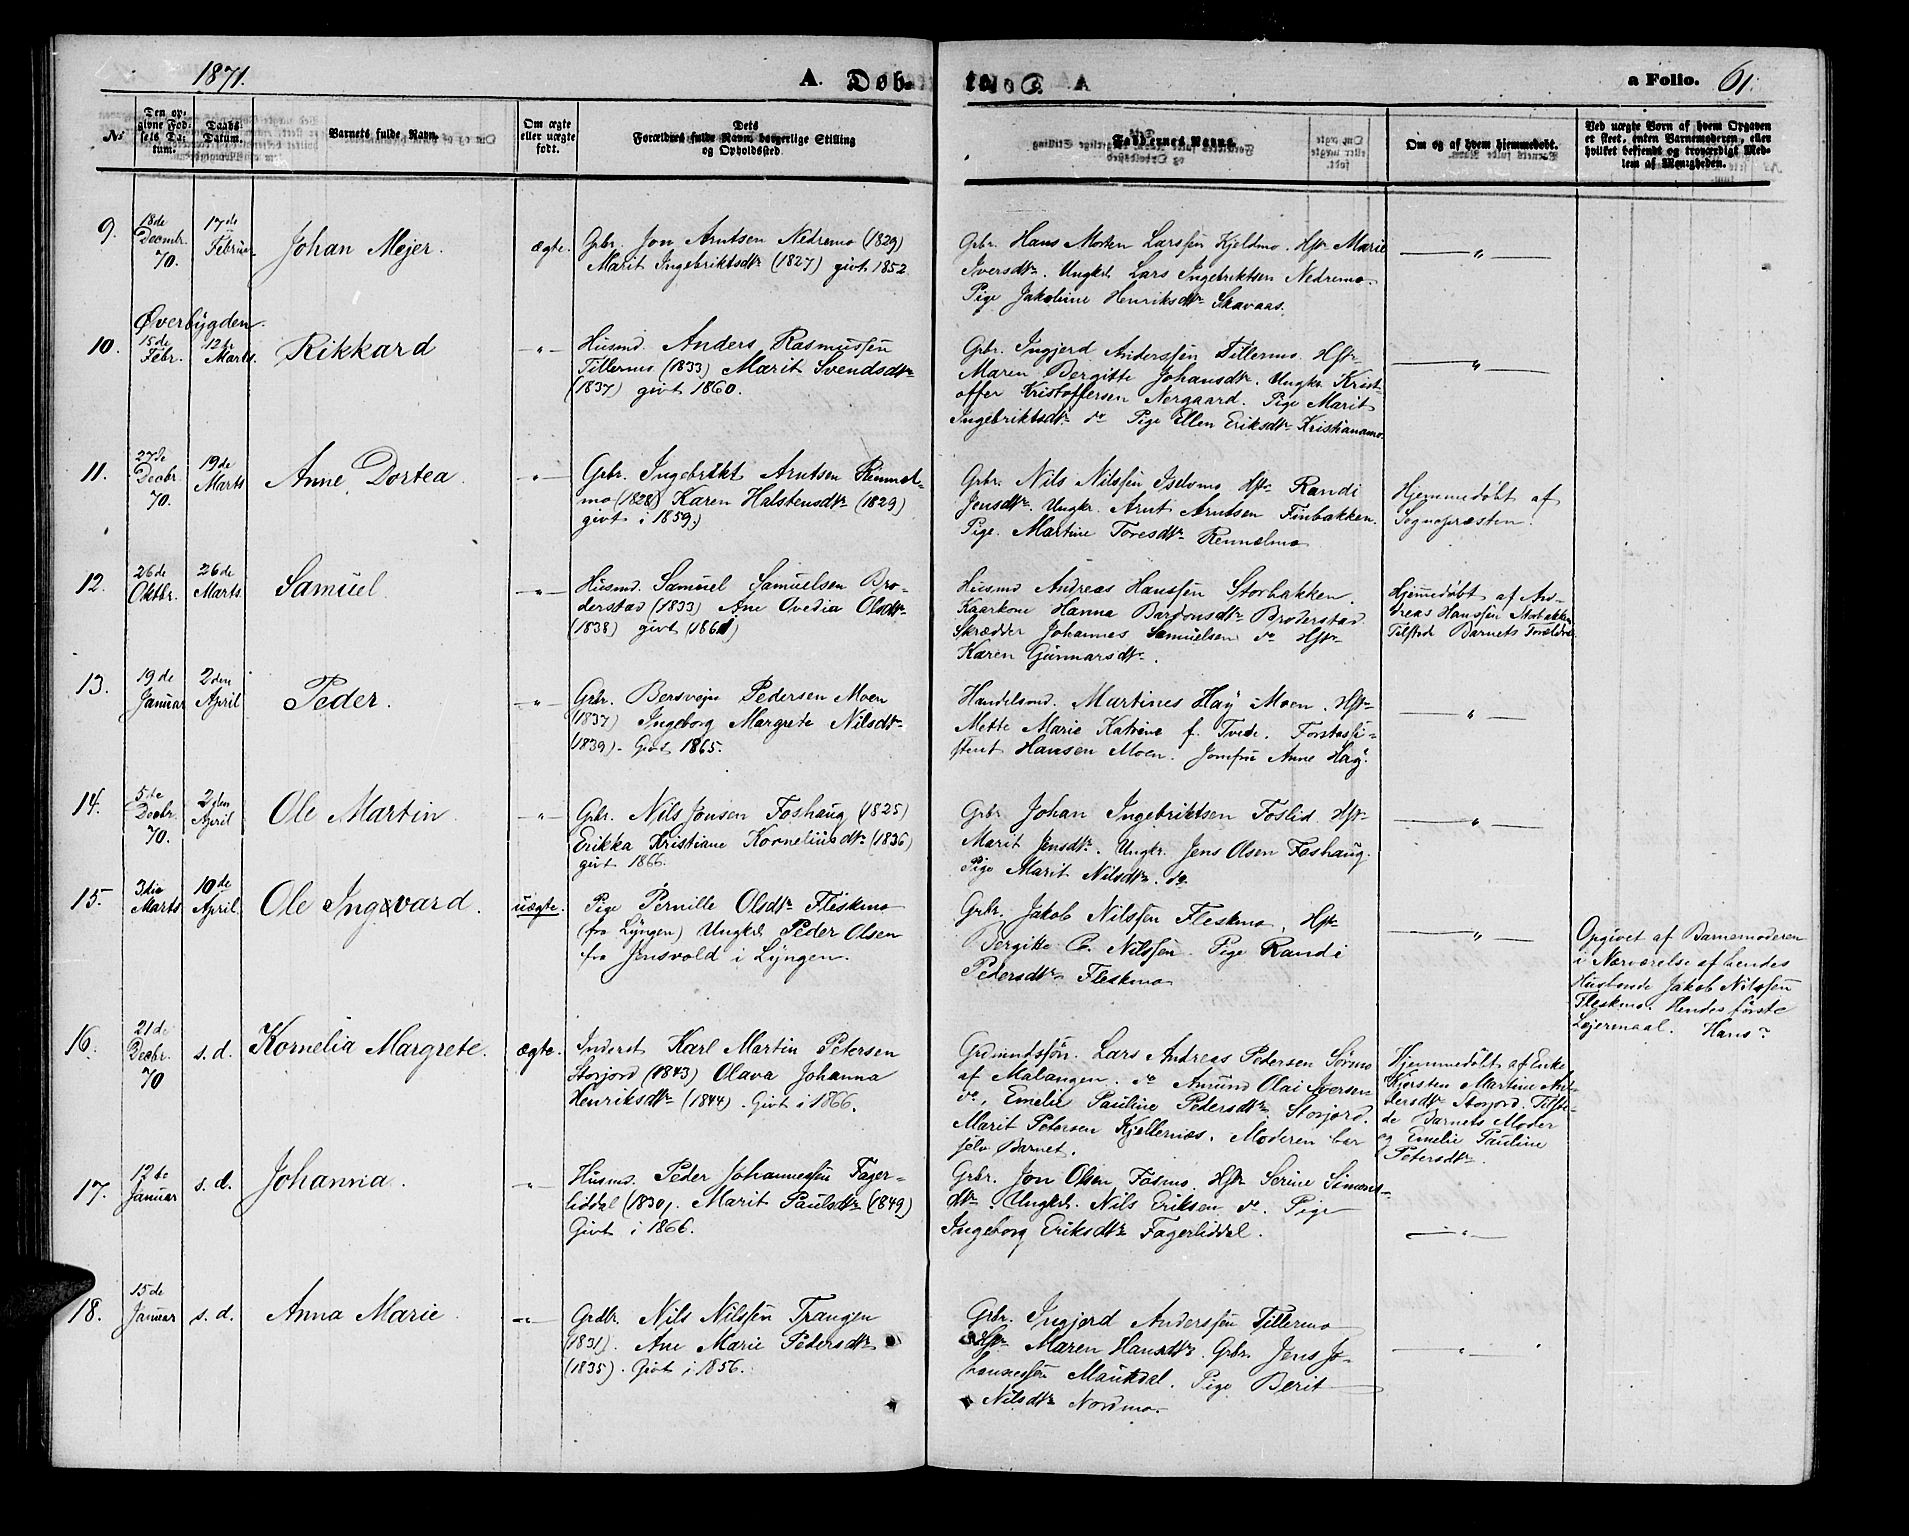 1871.
A. Døb-
te.
a Folio. 61.
No
Den op-
givne Fød-
sels Da-
tum.
Daabs-
Datum.
Barnets fulde Navn.
Om ægte
eller uægte
født.
Dets
Forældres fulde Navn borgerlige Stilling
og Opholdssted.
Faddernes Navne.
Om og af hvem hjemmedøbt.
Ved uægte Børn af hvem Opgaven
er skeet, enten Barnemoderen, eller
hvilket bekjendt og troværdigt Med-
lem af Menigheden.
9.
18de
Decmbr.
70.
17de
Februar
Johan Mejer.
ægte.
Gbr. Jon Arntsen Nedremo (1829)
Marit Ingebriktsdtr (1827) givt 1852.
Gbr. Hans Morten Larssen Kjeldmo. Hstr Marie
Iversdtr. Ungkl. Lars Ingebriktsen Nedremo.
Pige Jakobine Henriksdtr Skavaas.
— " —
Øverbygden.
10.
15de
Febr.
12te
Marts.
Rikkard
— " —
Husmd. Anders Rasmussen
Tillermo (1833) Marit Svendsdtr
(1837) givt 1860.
Gbr. Ingjerd Anderssen Tillermo. Hstr
Maren Bergitte Johansdtr. Ungkr. Krist-
offer Kristoffersen Nergaard. Pige Marit
Ingebriktsdtr do Pige Ellen Eriksdtr Kristianamo.
— " —
11.
27de
Decbr.
70.
19de
Marts
Anne Dortea.
— " —
Gbr. Ingebrikt Arntsen Rennel-
mo (1828) Karen Halstensdtr (1829)
givt i 1859.)
Gbr. Nils Nilssen Iselvmo Hstr Randi
Jensdtr. Ungkr. Arnt Arntsen Finbakken.
Pige. Martine Toresdtr Rennelmo
Hjemmedøbt af
Sognepræsten.
12.
26de
Oktbr.
26de
Marts
Samuel.
— " —
Husmd. Samuel Samuelsen Bro-
derstad (1833) Ane Ovedia Olsdtr
(1838) givt (1861)
Husmd Andreas Hanssen Storbakken.
Kaarkone Hanna Bardonsdtr Broderstad
Skrædder Johannes Samuelsen do Hstr
Karen Gunnarsdtr.
Hjemmedøbt af An-
dreas Hanssen Storbakken
Tilstede Barnets Forældre
13.
19de
Januar
2den
April
Peder.
— " —
Gbr. Bersvejn Pedersen Moen
(1837) Ingeborg Margrete Nilsdtr
(1839). Givt 1865.
Handelsmd. Martines Høÿ Moen. Hstr
Mette Marie Katrine f. Tvede. Forstassi-
stent Hansen Moen. Jomfru Anne Høÿ.
— " —
14.
5te
Decbr.
70.
2den
April
Ole Martin
— " —
Gbr. Nils Jonsen Foshaug (1825)
Erikka Kristiane Korneliusdtr (1836)
givt 1866.
Gbr. Johan Ingebriktsen Foslid. Hstr
Marit Jensdtr. Ungkr. Jens Olsen Foshaug.
Pige Marit Nilsdtr. do
— " —
15.
3die
Marts
10de
April.
Ole Ingevard.
uægte.
Pige Pernille Olsdtr Fleskmo
(fra Lÿngen) Ungkl. Peder Olsen
fra Jensvold i Lÿngen.
Gbr. Jakob Nilssen Fleskmo, Hstr
Bergitte C. Nilssen. Pige Randi
Pedersdtr Fleskmo
— " —
Opgivet af Barnemoderen
i Nærværelse af hendes
Husbonde Jakob Nilssen
Fleskmo. Hendes første
Lejermaal. Hans?
16.
21de
Decbr.
70
s. d.
Kornelia Margrete.
ægte.
Inderst Karl Martin Petersen
Storjord (1843) Olava Johanna
Henriksdtr (1844). Givt i 1866.
Grdmandssøn. Lars Andreas Pedersen Sørmo
af Malangen. do Amund Olai Iversen
do, Emelie Pauline Pedersdtr Storjord.
Marit Petersen Kjellernæs. Moderen bar
selv Barnet.
Hjemmedøbt af Enke
Kjersten Martine An-
dersdtr Storjord. Tilste-
de Barnets Moder
og Emelie Pauline
Petersdtr.
17.
12te
Januar
s. d.
Johanna.
— " —
Husmd. Peder Johannessen Fager-
liddal (1830). Marit Paulsdtr (1849)
Givt i 1866.
Gbr. Jon Olsen Fosmo. Hstr Serine Simons-
dtr. Ungkl. Nils Eriksen do. Pige
Ingeborg Eriksdtr Fagerliddal.
— " —
18.
15de
Januar
s. d.
Anna Marie
— " —
Grdbr. Nils Nilssen Trangen
(1831). Ane Marie Pedersdtr
(1835). Givt i 1856.
Gbr. Ingjerd Anderssen Tillermo
Hstr Maren Hansdtr. Gbr. Jens Jo-
hannessen Maukdal. Pige Berit
Nilsdtr Nordmo.
— " —